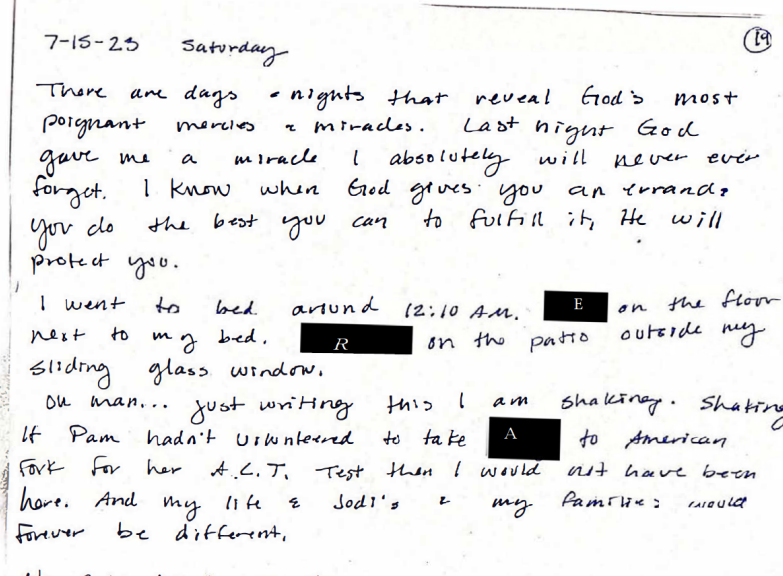 7-15-23 Saturday (19)
There are days & nights that reveal God's most
poignant mercies & miracles. Last night God
gave me a miracle I absolutely will never ever
forget. I know when God gives you an errand &
you do the best you can to fulfill it, He will
protect you.
I went to bed around 12:10 AM. E on the floor
next to my bed. R on the patio outside my
sliding glass window.
Oh man... just writing this I am shaking. Shaking
If Pam hadn't volunteered to take A to American
Fork for her A.C.T. Test then I would not have been
here. And my life & Jodi's & my families would
forever be different.